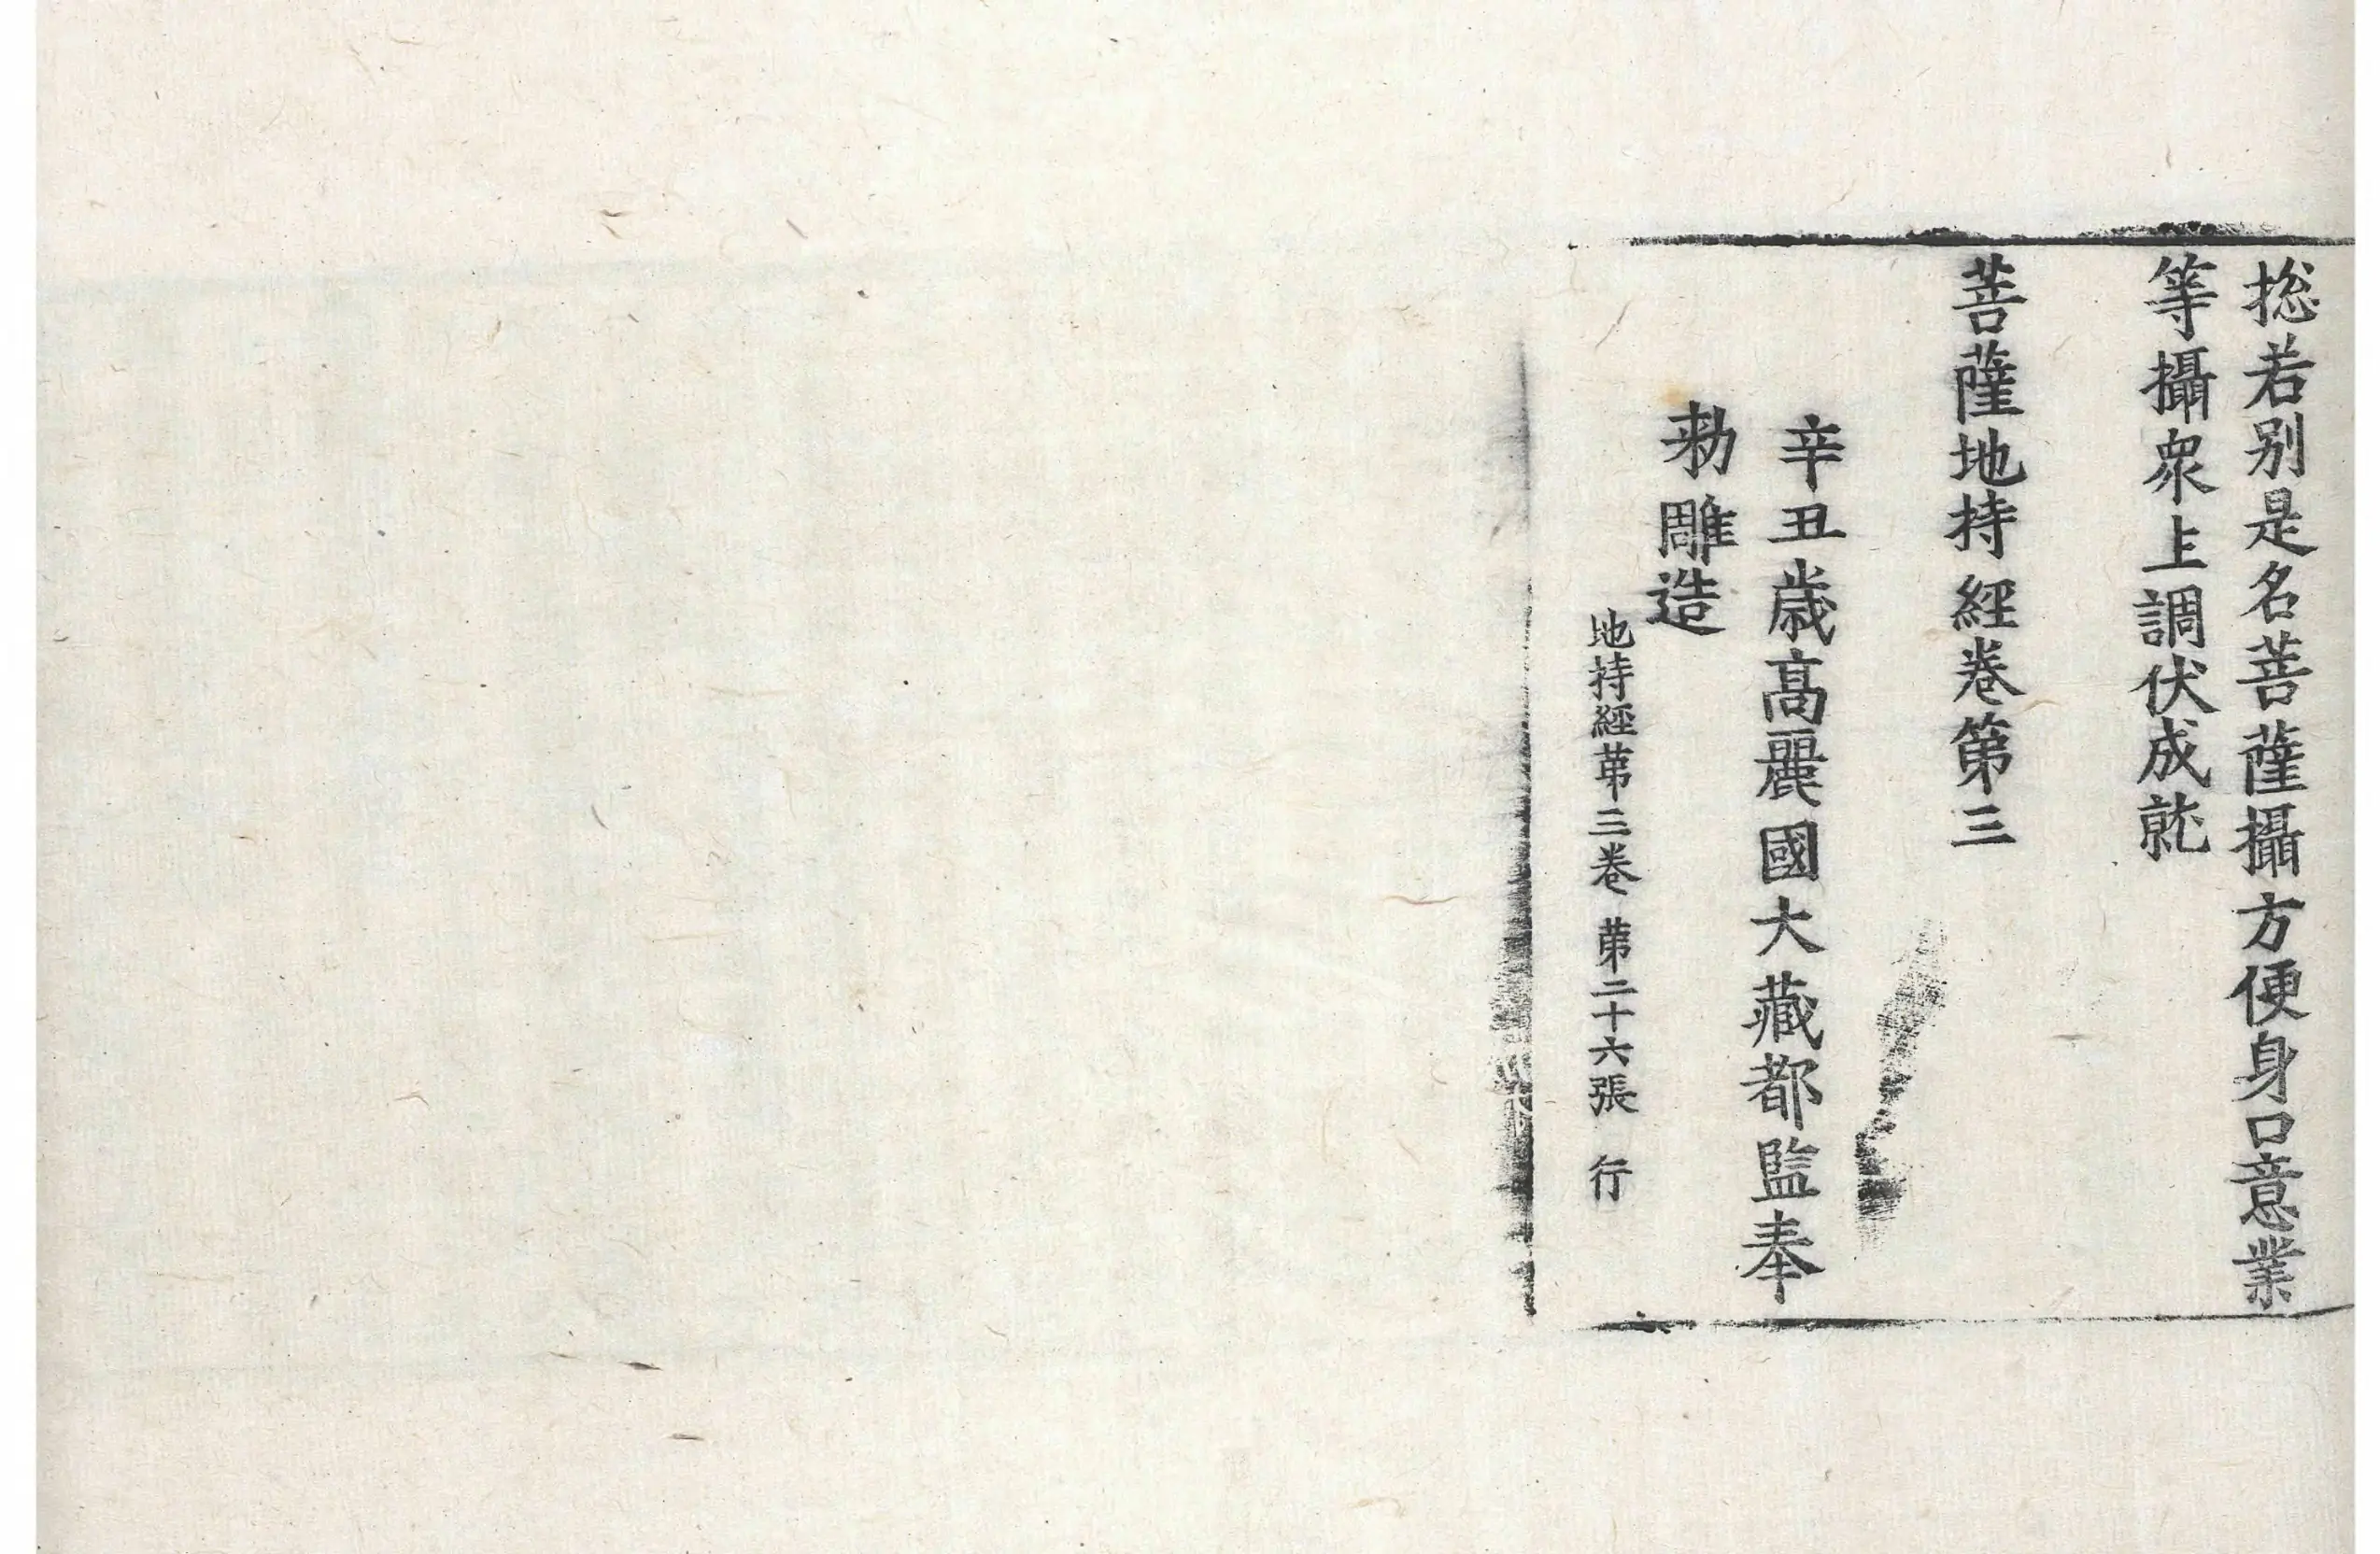 捴若别是名菩薩攝方便身口意業
等攝衆生調伏成就
菩薩地持經卷第三
辛丑歲高麗國大藏都監奉
勑雕造
地持經苐三卷 苐二十六張 行